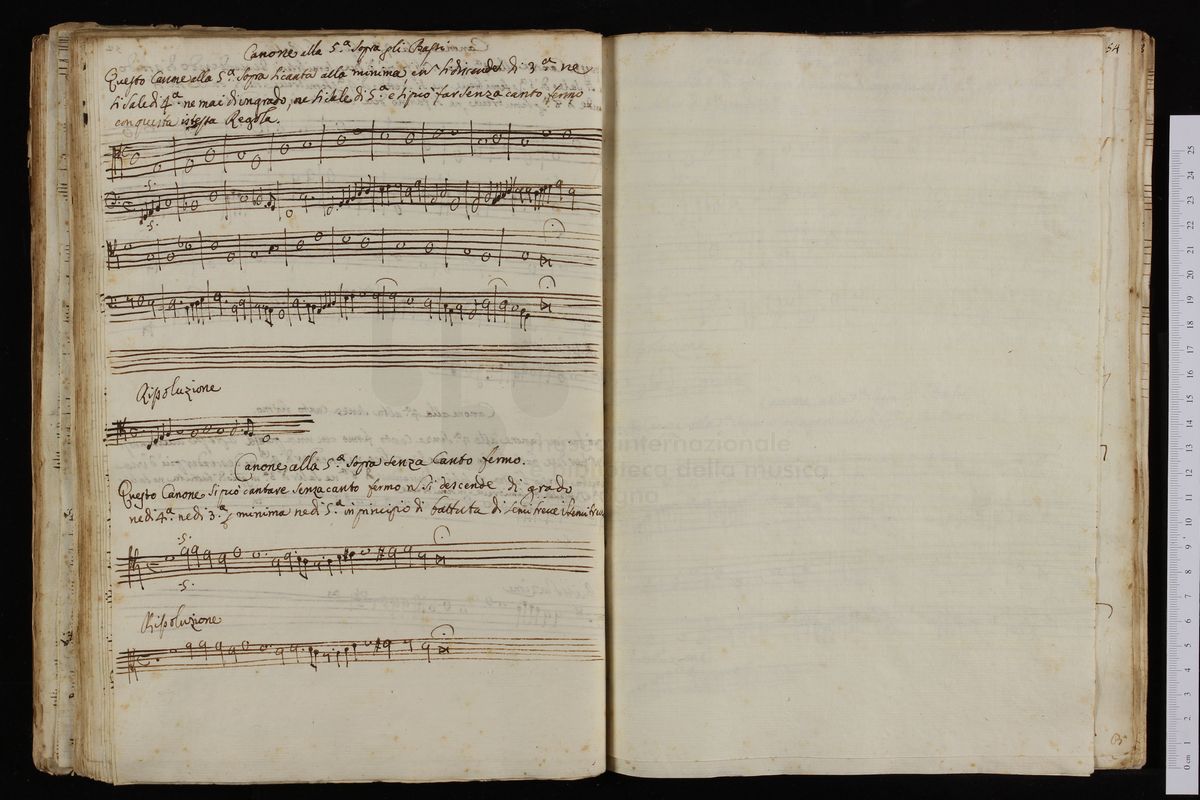 Canone alla 5.ª Sopra gli Bassi
Questo Canone alla 5.ª Sopra si canta alla minima di 3.ª ne
si sale di 4.ª ne mai di un grado, ne si sale di 5.ª e si può far senza canto fermo
con questa istessa Regola.
.5.
.5.
Rissoluzione
Canone alla 5.ª Sopra Senza Canto fermo.
Questo Canone si può cantare Senza canto fermo si descende di grado
ne di 4.ª ne di 3.ª minima ne di 5.ª in principio di battuta di
.5.
.5.
Rissoluzione
54
internazionale
biblioteca della musica
0 cm 1 2 3 4 5 6 7 8 9 10 11 12 13 14 15 16 17 18 19 20 21 22 23 24 25